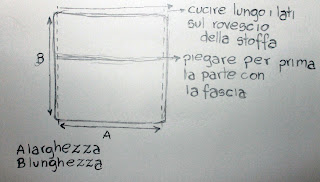 cucire lungo i lati
sul rovescio
della stoffa
B
piegare per prima
la parte con
la fascia
A
A larghezza
B lunghezza